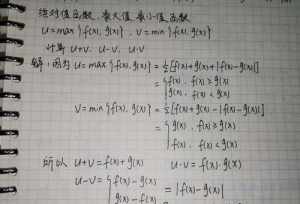 绝对值函数、最大值、最小值函数
u=max{f(x), g(x)}, v=min{f(x), g(x)}
计算 u+v. u-v. u·v
解：因为 u=max{f(x), g(x)} = ½[f(x)+g(x)+|f(x)-g(x)|]
= { f(x), f(x)≥g(x)
g(x), f(x)<g(x)
v=min{f(x), g(x)} = ½[f(x)+g(x)-|f(x)-g(x)|]
= { g(x), f(x)≥g(x)
f(x), f(x)<g(x)
所以 u+v=f(x)+g(x) u·v=f(x)·g(x)
u-v= { f(x)-g(x) = |f(x)-g(x)|
g(x)-f(x)